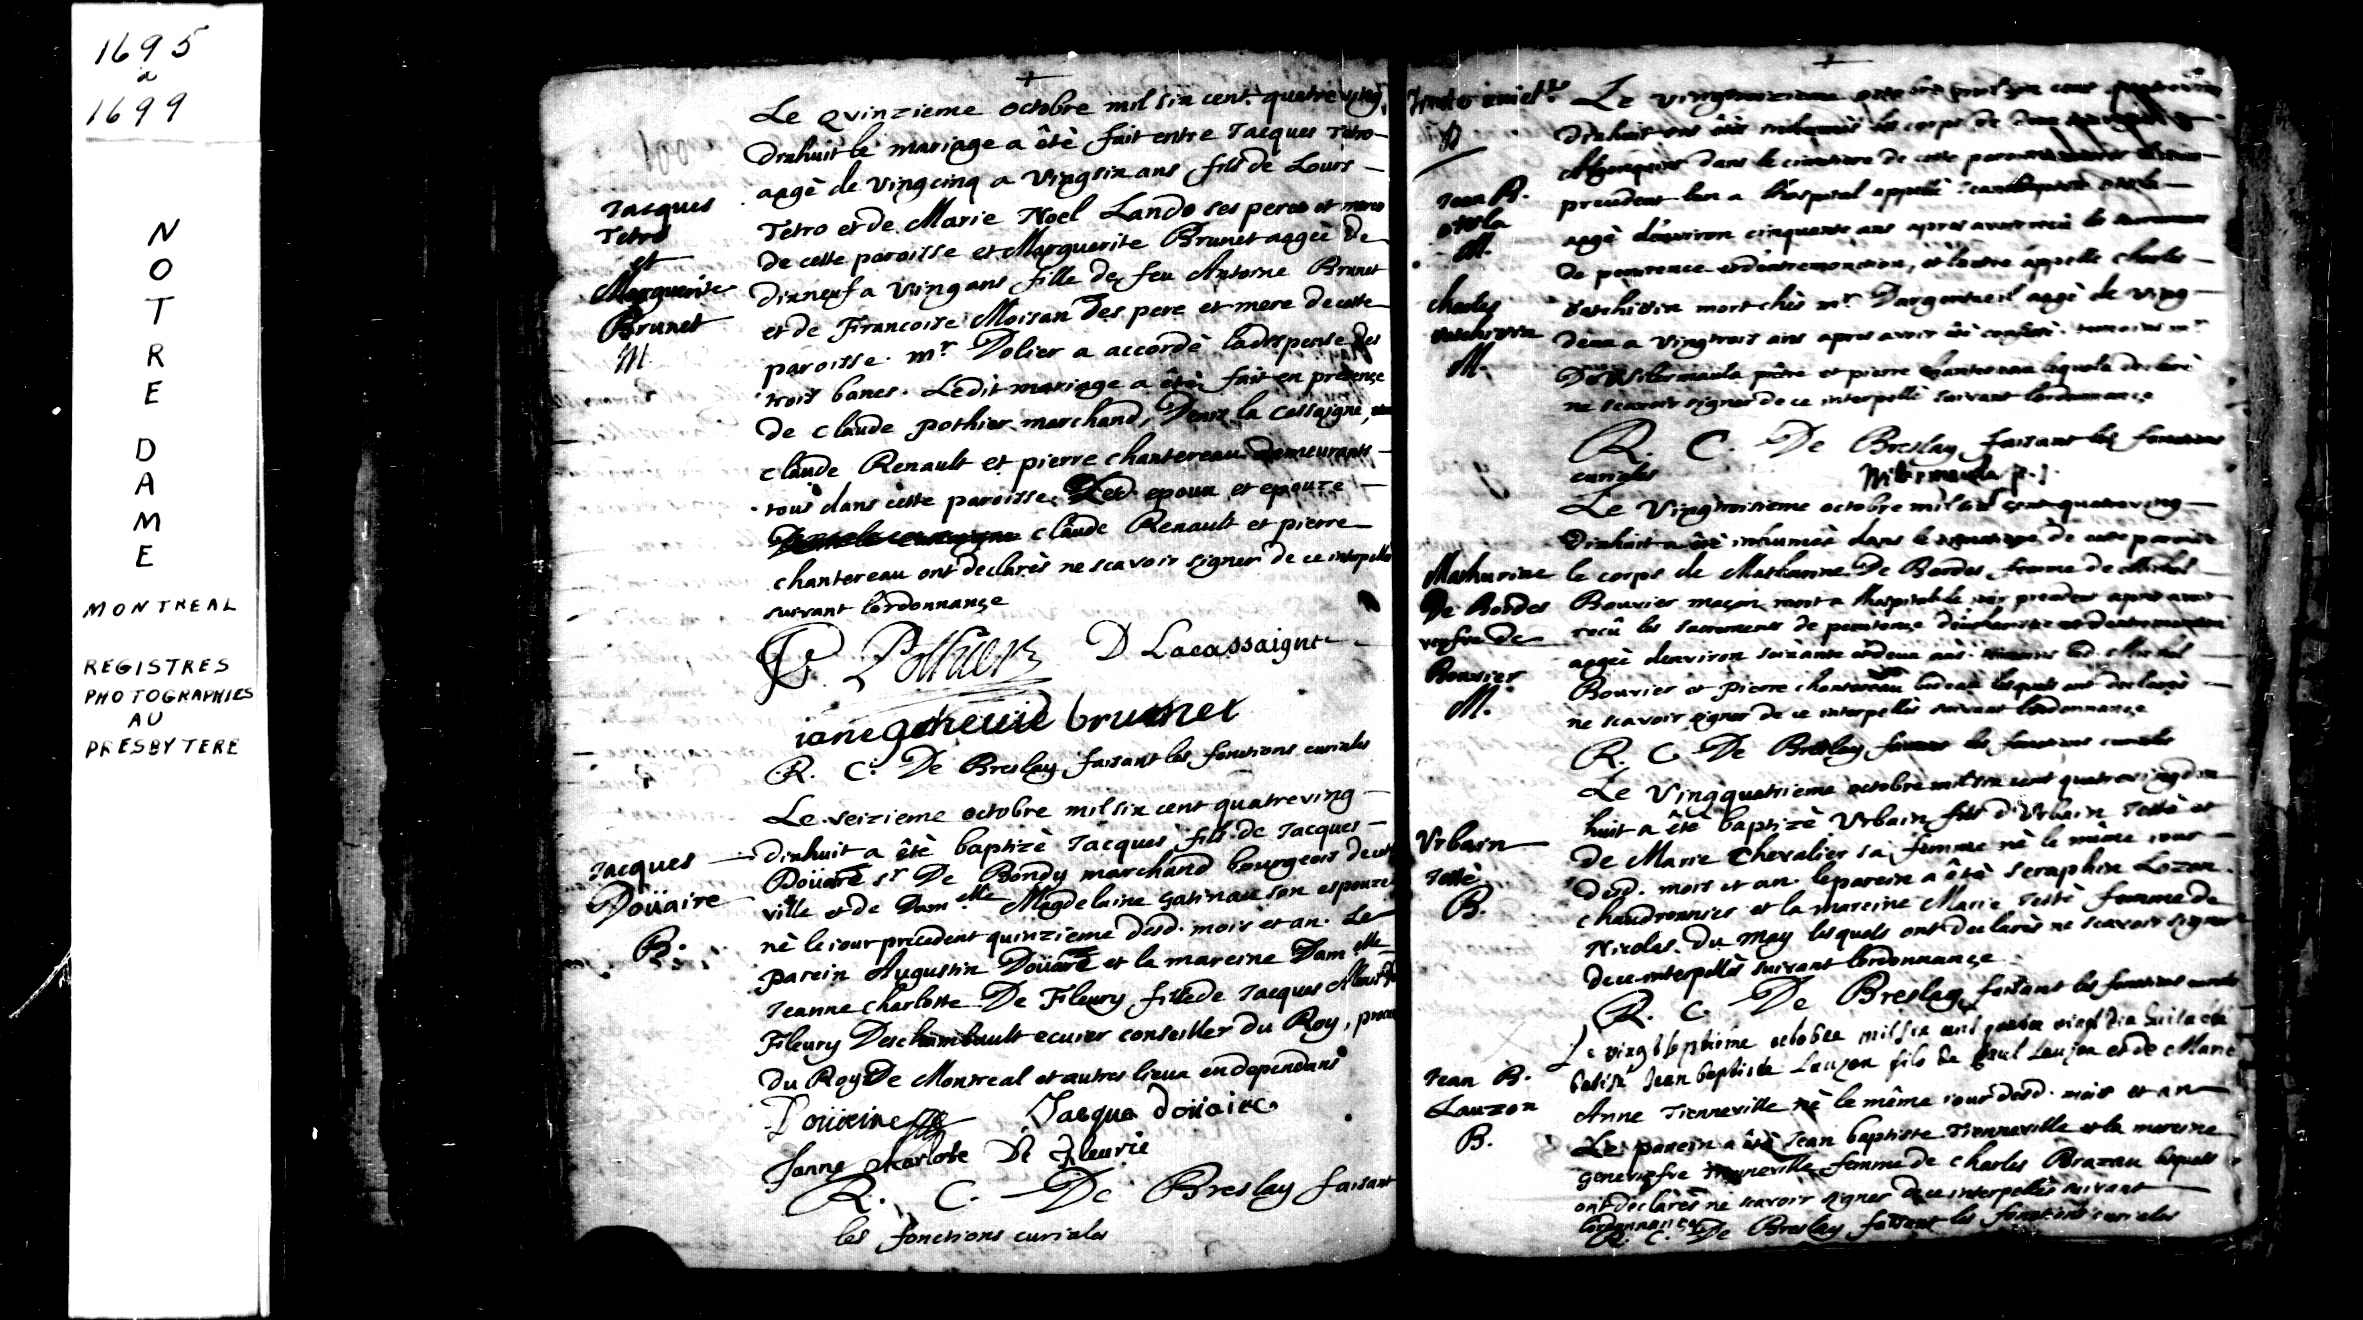 1695
a
1699
NOTRE
DAME
MONTREAL
REGISTRES
PHOTOGRAPHIES
AU
PRESBYTERE
Jacques
Tetro
et
Marguerite
Brunet
M
Le Qvinzieme octobre mil six cent quatre ving
dixhuit le mariage a êtè fait entre Jacques Tetro
aagè de vingcinq a vingsix ans fils de Louis
Tetro et de Marie Noel Lando ses peres et meres
de cette paroisse et Marguerite Brunet aagèe De
dixneuf a ving ans fille de feu Antoine Brunet
et de Francoise Moisan des pere et mere de cette
paroisse. mr. Dolier a accordè la dispense des
trois bancs. Ledit mariage a êtè fait en presence
de claude pothier marchand, Denis la Cassaigne,
claude Renault et pierre chantereau demeurants
tous dans cette paroisse. Led. epoux et epouze
claude Renault et pierre
chantereau ont declarès ne scavoir signer de ce interpellès
suivant lordonnance
C. Pothier D Lacassaigne
brunet
R. C. De Breslay faisant les fonctions curiales
Jacques
Doüaire
B.
Le seizieme octobre mil six cent quatreving
dixhuit a êtè baptizè Jacques fils de Jacques
Doüare sr De Bondy marchand bourgeois de cette
ville et de Damelle Magdelaine gatinau son espouze
nè le iour precedent quinzieme desd. mois et an. Le
parein Augustin Doüare et la mareine Damelle
Jeanne charlotte De Fleury fille de Jacques Alexis
Fleury Deschambault ecuier conseiller du Roy,
du Roy De Montreal et autres lieux en dependans
Doüeire Jacque doüaire
Janne charlote De Fleurie
R. C. De Breslay faisant
les fonctions curiales
Jean B.
M.
charles
M.
Le
dixhuit ont étè inhumés les corps de deux
Algonquins dans le cimetiere de cette paroisse
precedent lun a l'hospital appellè Jean baptiste
aagè denviron cinquante ans apres avoir receu les sacremens
de penitence et dextremonction, et lautre appellè charles
mort chès mr. Dargenteuil aagè de ving
deux a vingtrois ans apres avoir étè confessè. temoins mr.
De Villermaula prêtre et pierre chantereau lequel a declarè
ne scavoir signer de ce interpellè suivant lordonnance
R. C. De Breslay faisant les fonctions
curiales Villermaula p.
Mathurine
De Bordes
veufve de
Bouvier
M.
Le Vingtroisieme octobre mil six cent quatreving
dixhuit a étè inhumée dans le cimetiere de cette paroisse
le corps de Mathurine De Bordes femme de Michel
Bouvier maçon morte a lhospital le iour precedent apres avoir
recû les sacrements de penitence deucharistie et dextremonction
aagèe denviron soixante et deux ans. temoins led. Michel
Bouvier et pierre chantereau bedeau lesquels ont declarés
ne scavoir signer de ce interpellés suivant lordonnance
R. C. De Breslay faisant les fonctions curiales
Vrbain
Tessè
B.
Le Vingquatrieme octobre mil six cent quatreving dix
huit a êtè baptizè Vrbain fils d'Vrbain Tessè et
de Marie Chevalier sa femme nè le même iour
desd. mois et an. le parein a êtè seraphin Lozon
chaudronnier et la mareine Marie Tessè femme de
Nicolas Du May lesquels ont declarès ne scavoir signer
de ce interpellès suivant lordonnance
R. C. De Breslay faisant les fonctions curiales
Jean B.
Lauzon
B.
Le vingt septieme octobre mil six cent quatre vingt dix huit a été
batisé Jean baptiste Lauzon fils de Paul Lauzon et de Marie
Anne Tienneville nè le même iour desd. mois et an
Le parein a êtè Jean baptiste Tienneville et la mareine
genevieve femme de charles Brazau lesquels
ont declarès ne scavoir signer de ce interpellès suivant
lordonnance
R. C. De Breslay faisant les fonctions curiales